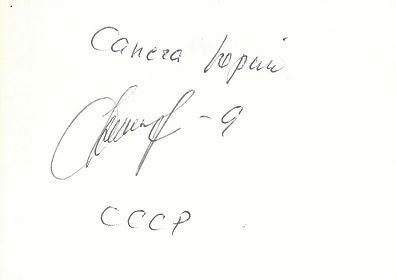 Сапега Юрий
- 9
СССР